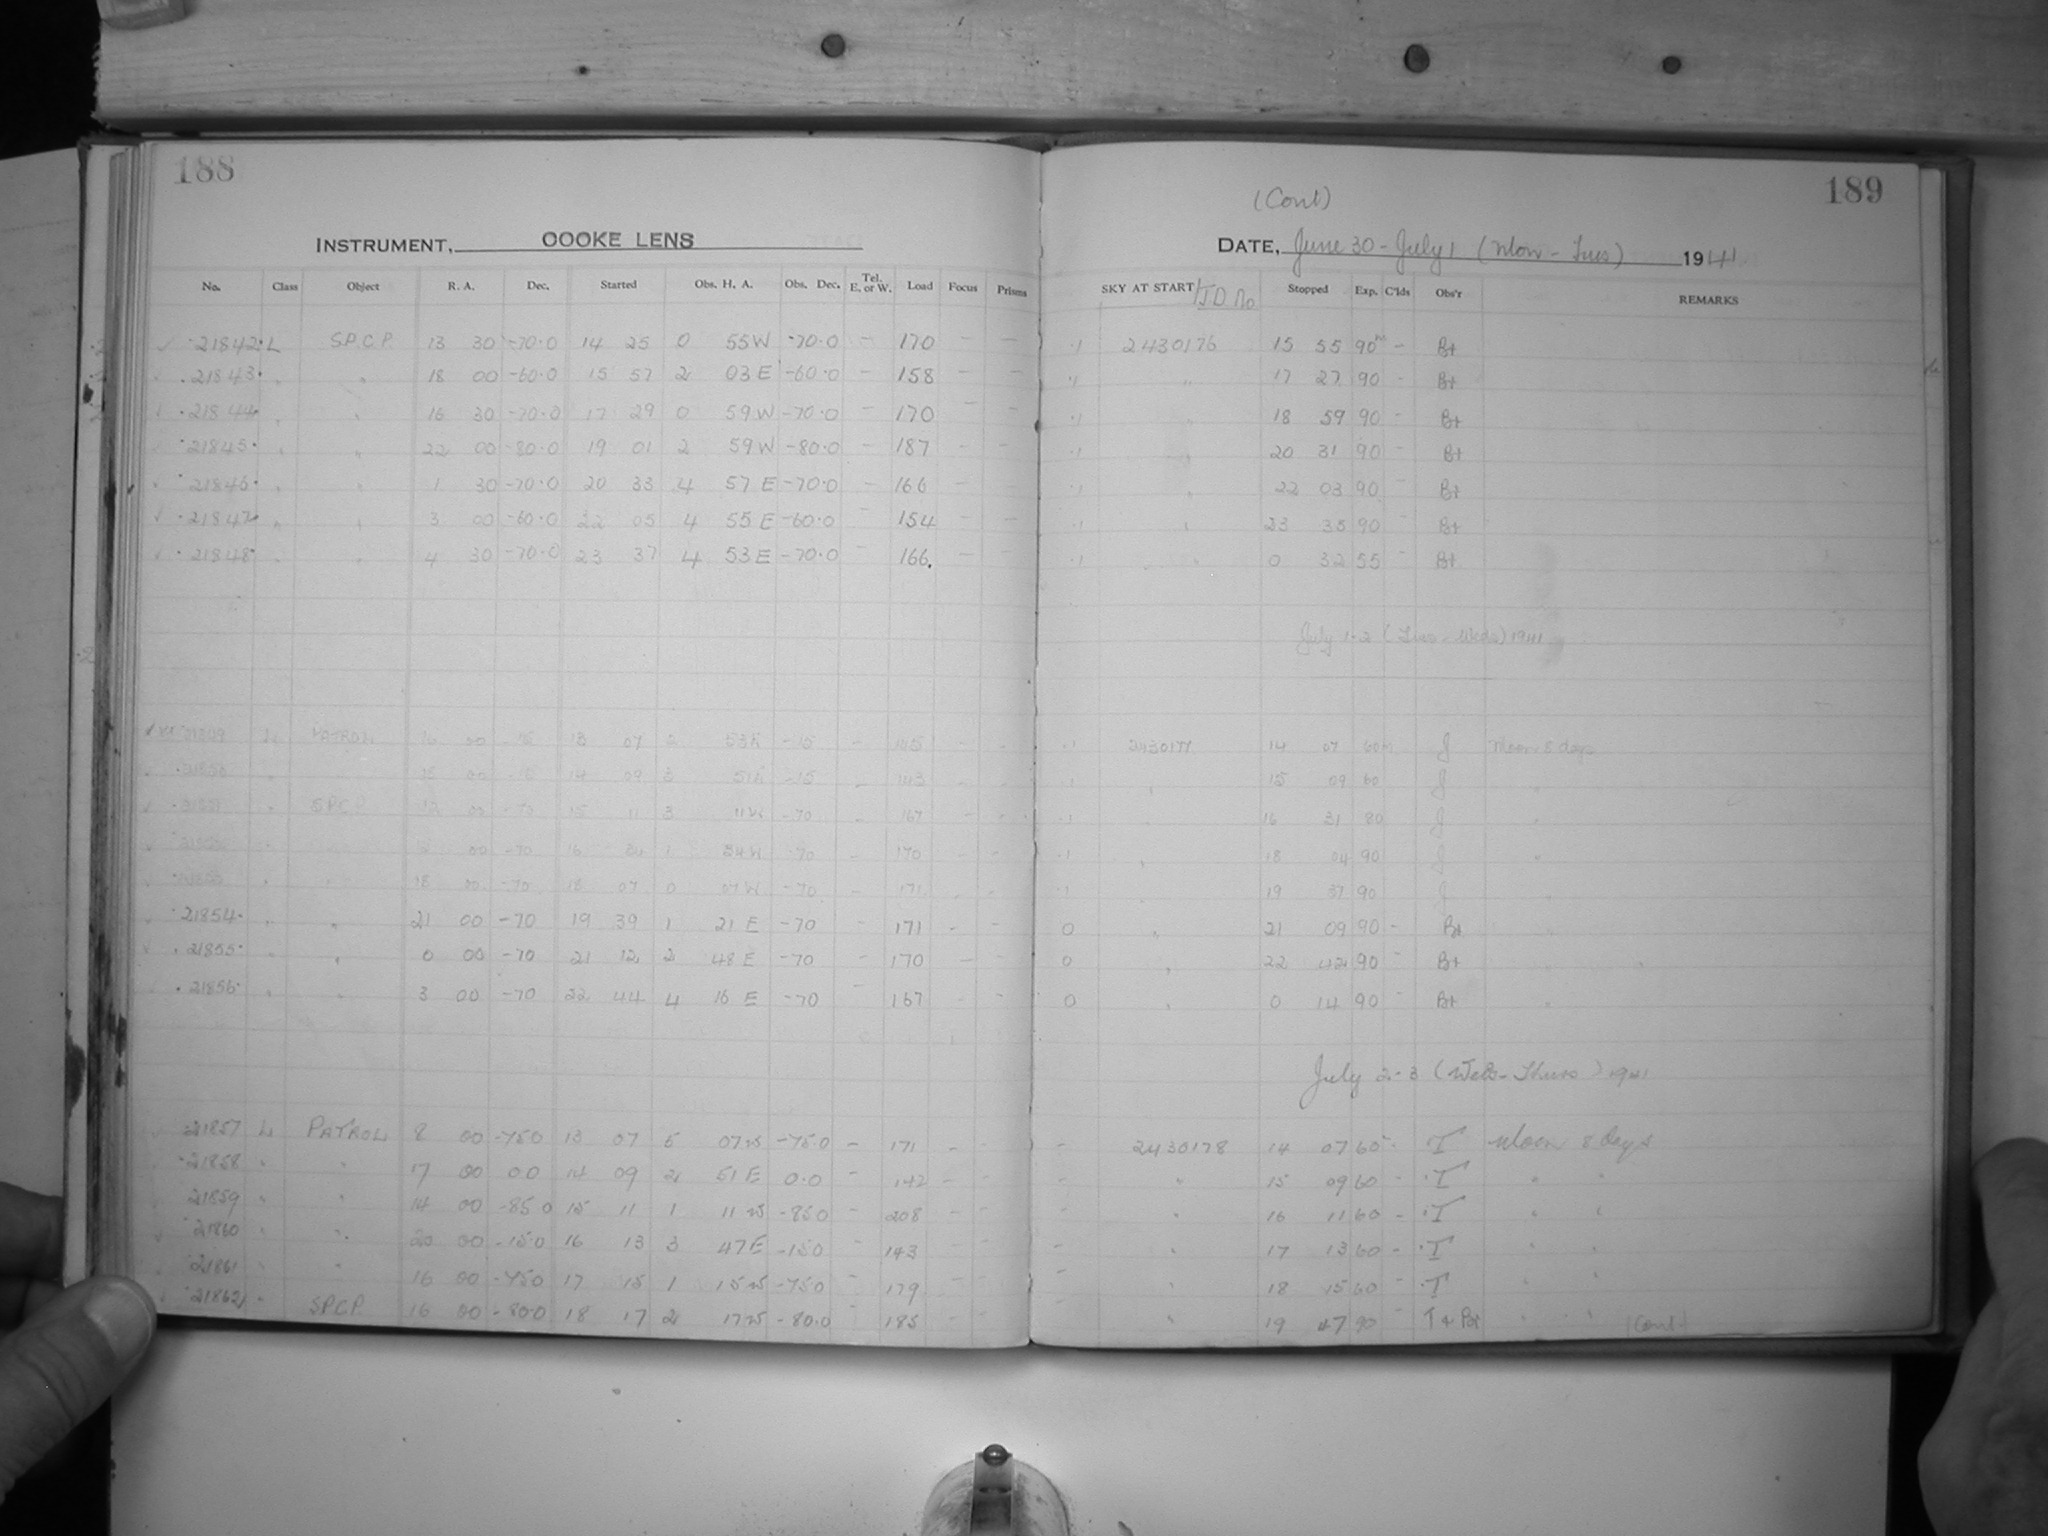 188
INSTRUMENT, COOKE LENS
No. Class Object R. A. Dec. Started Obs. H. A. Obs. Dec. Tel. E. or W. Load Focus Prisms
21842 L S.P.C.P. 13 30 -70.0 14 25 0 55 W -70.0 - 170 - -
21843 " " 18 00 -60.0 15 57 2 03 E -60.0 - 158 - -
21844 " " 16 30 -70.0 17 29 0 59 W -70.0 - 170 - -
21845 " " 22 00 -80.0 19 01 2 59 W -80.0 - 187 - -
21846 " " 1 30 -70.0 20 33 4 57 E -70.0 - 166 - -
21847 " " 3 00 -60.0 22 05 4 55 E -60.0 - 154 - -
21848 " " 4 30 -70.0 23 37 4 53 E -70.0 - 166. - -
21849 L PATROL 16 00 13 07 2 -15 -
00 14 09 3 -15 - 143
" SPCP 12 00 -70 15 11 3 11 W -70 - 167 - -
00 -70 16 34 1 34 W -70 - 170 - -
" " 18 00 -70 18 07 0 07 W -70 - 171 - -
21854 " " 21 00 -70 19 39 1 21 E -70 - 171 - -
21855 " " 0 00 -70 21 12 2 48 E -70 - 170 - -
21856 " " 3 00 -70 22 44 4 16 E -70 - 167 - -
21857 L PATROL 8 00 -75.0 13 07 5 07 W -75.0 - 171 - -
21858 " " 17 00 0.0 14 09 2 51 E 0.0 - 142 - -
21859 " " 14 00 -85.0 15 11 1 11 W -85.0 - 208 - -
21860 " " 20 00 -15.0 16 13 3 47 E -15.0 - 143 - -
21861 " " 16 00 -75.0 17 15 1 15 W -75.0 - 179 - -
21862 " SPCP 16 00 -80.0 18 17 2 17 W -80.0 185 - -
189
(Cont)
DATE, June 30 - July 1 (Mon - Tues) 1941
SKY AT START / JD No Stopped Exp. C'lds Obs'r REMARKS
.1 2430176 15 55 90m - Bt
.1 " 17 27 90 - Bt
.1 " 18 59 90 - Bt
.1 " 20 31 90 - Bt
.1 " 22 03 90 - Bt
.1 " 23 35 90 - Bt
.1 " 0 32 55 - Bt
July 1-2 (Tues - Weds) 1941
.1 2430177 14 07 60m J Moon 8 days
" 15 09 60 J "
.1 " 16 31 80 J "
.1 " 18 04 90 J "
.1 19 37 90 J
0 " 21 09 90 - Bt "
0 " 22 42 90 - Bt " "
0 " 0 14 90 - Bt "
July 2-3 (Weds - Thurs) 1941
- 2430178 14 07 60 - T Moon 8 days
- " 15 09 60 - T " "
- " 16 11 60 - T " "
- " 17 13 60 - T " "
- " 18 15 60 - T " "
" 19 47 90 - T & Bt " " (Cont)